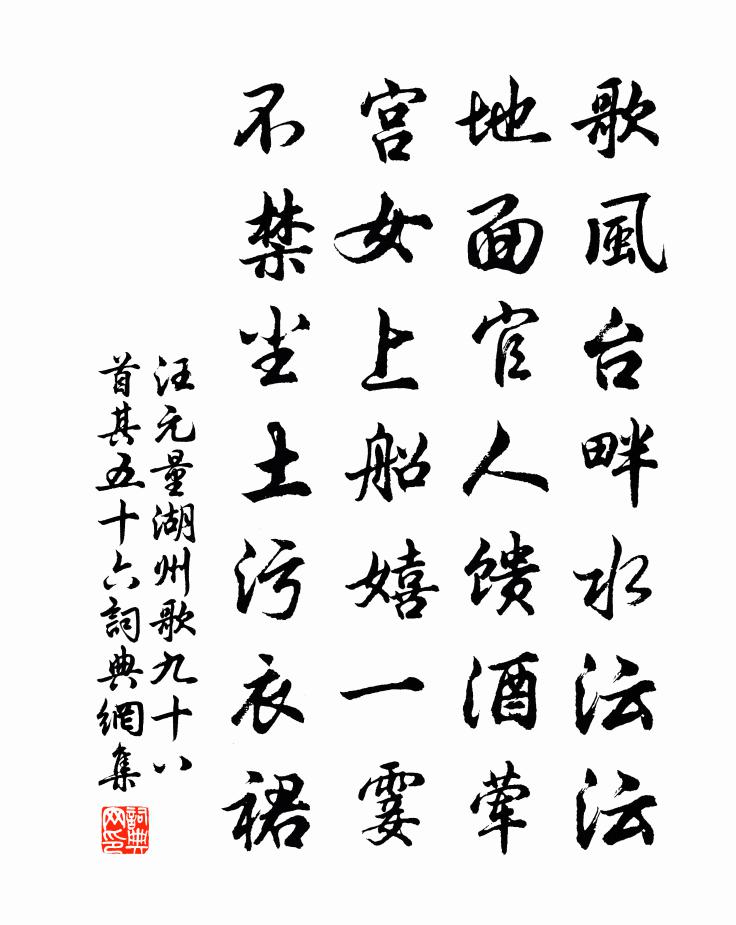 歌風台畔水沄沄
地面官人馈酒荤
宮女上船嬉一霎
不禁尘土污衣裙
汪元量湖州歌九十八
首其五十六詞典網集
詞典網印